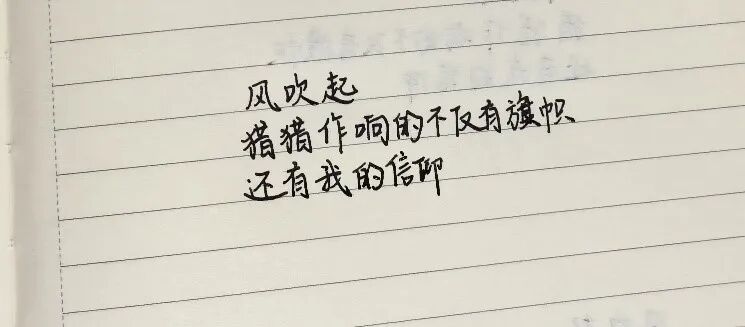 风吹起
猎猎作响的不仅有旗帜
还有我的信仰